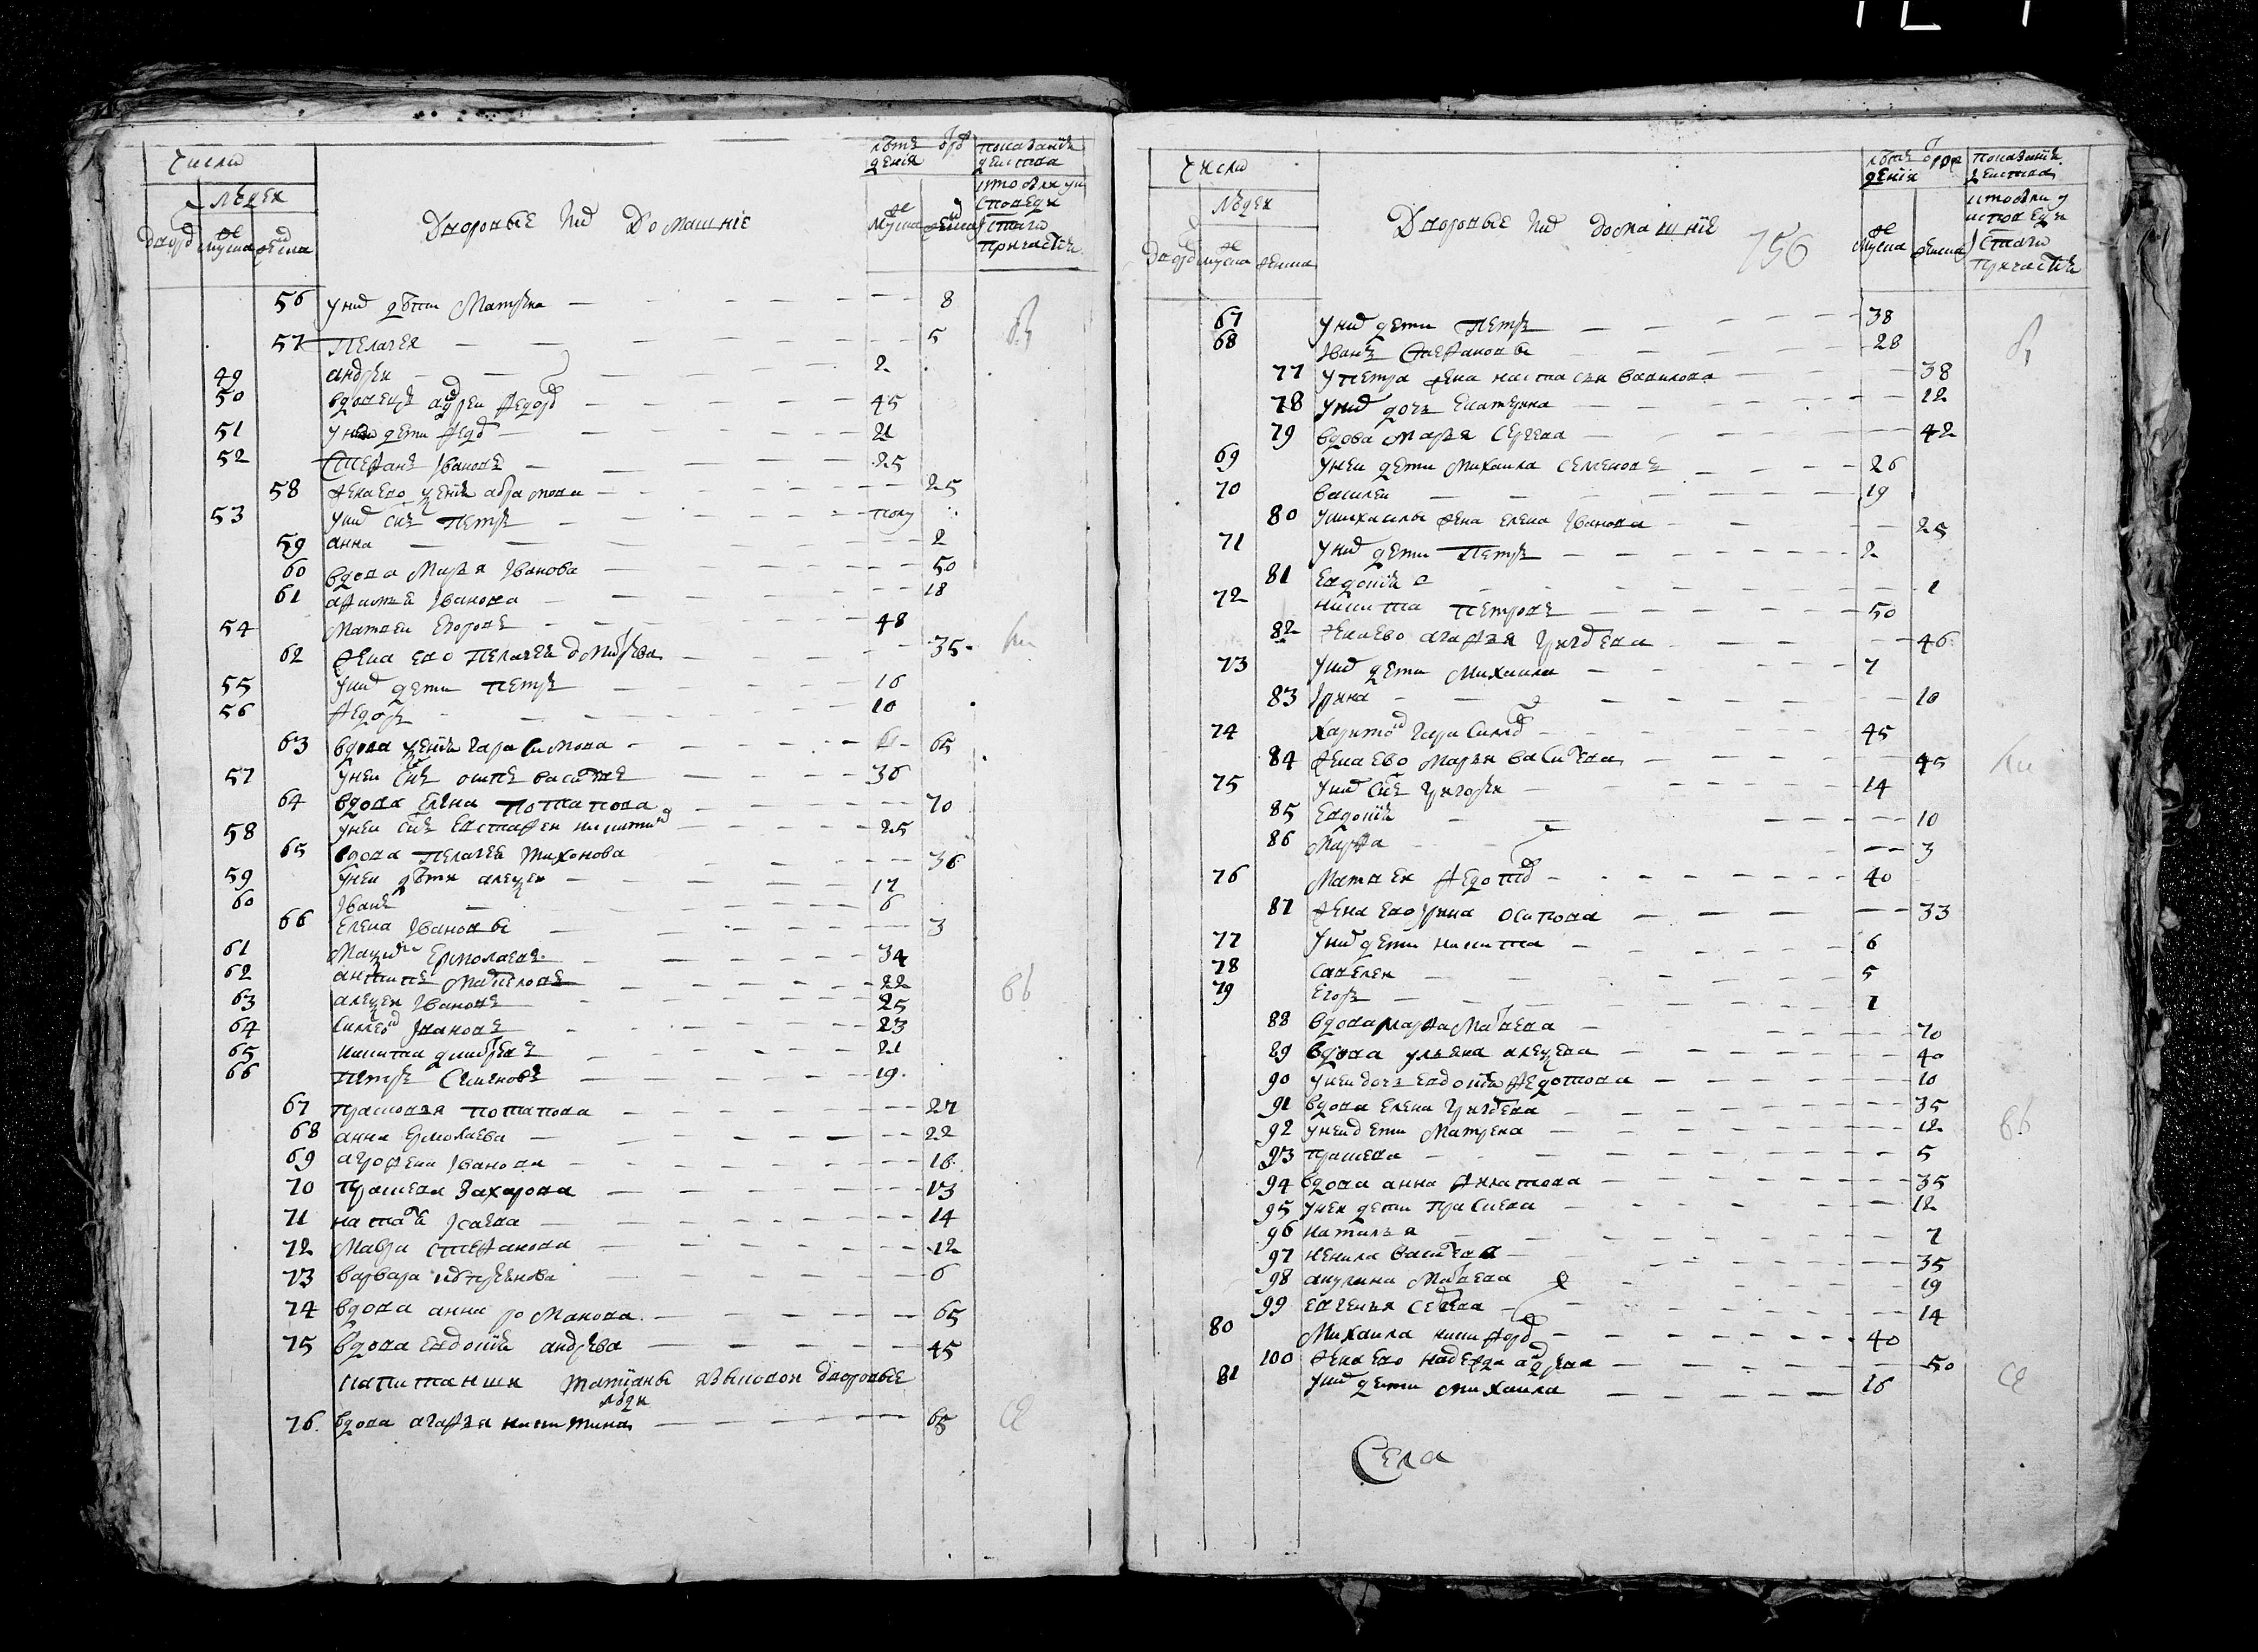 число
людей
дворов мужска женска
Дворовые их домашние
лѣтъ от рождения
мужска женска
показание действа
кто был у исповеди и святого причастия
56 у них дѣти Матрена 8
57 Пелагея 5
49 андреи 2
50 вдовецъ андреи Федоров 45
51 у него дети Федоръ 21
52 Стефанъ Ивановъ 25
58 жена ево Ксения абрамова 25
53 у них сынъ Петръ полу
59 анна 2
60 вдова Марья Иванова 50
61 афимья Иванова 18
54 Матвеи Егоровъ 48
62 жена ево Пелагея дмитрева 35
55 у них дети Петръ 16
56 Федоръ 10
63 вдова Ксения гарасимова 65
57 у неи сынъ осипъ васильевъ 36
64 вдова Елена Потапова 70
58 у неи сынъ Евстафеи никитин 25
65 вдова Пелагея тихонова 36
59 у неи дѣти алексеи 17
60 Иванъ 6
66 Елена Ивановы 3
61 Максим Ермолаевъ 34
62 антипъ Мавтеловъ 22
63 алексеи Ивановъ 25
64 Симеон Ивановъ 23
65 никита дмитревъ 21
66 Петръ Семеновъ 19
67 прасковья потапова 27
68 анна Ермолаева 22
69 агрофена Иванова 16
70 прасковья Захарова 13
71 наталья Исаева 14
72 Мавра стефанова 12
73 варвара 6
74 вдова анна романова 65
75 вдова Евдокия андрева 45
капитанши татианы языковои дворовые
люди
76 вдова агафья никитина 65
число
людей
дворов мужска женска
Дворовые их домашние
756
лѣтъ от рождения
мужска женска
показание действа
кто был у исповеди и святого причастия
67 у них дети Петръ 38
68 Иванъ Стефановы 28
77 у петра жена настасья вавилова 38
78 у них дочь Екатерина 12
79 вдова Марья Сергева 42
69 у неи дети Михаила Семеновъ 26
70 василеи 19
80 у михаилы жена елена Иванова 25
71 у них дети Петръ 2
81 Евдокия 1
72 никита Петровъ 50
82 жена ево агафья Григорева 46
73 у них дети Михаила 7
83 Ирина 10
74 Харитон Герасимов 45
84 жена ево Марья васильева 45
75 у них сынъ Григореи 14
85 Евдокия 10
86 Марфа 3
76 Матвеи Федотов 40
87 жена ево Ирина осипова 33
77 у них дети никита 6
78 Савелеи 5
79 Егоръ 1
88 вдова марфа Матвева 70
89 вдова ульяна алексева 40
90 у неи дочь евдокия Федотова 10
91 вдова Елена Григорева 35
92 у неи дети Матрена 12
93 прасковья 5
94 вдова анна Филатова 35
95 у неи дети Прасковья 12
96 наталья 7
97 ненила васильева 35
98 акулина Матвева 19
99 евгенья 14
80 Михаила никифоров 40
100 жена ево надежда андрева 50
81 у них дети михаила 16
Села